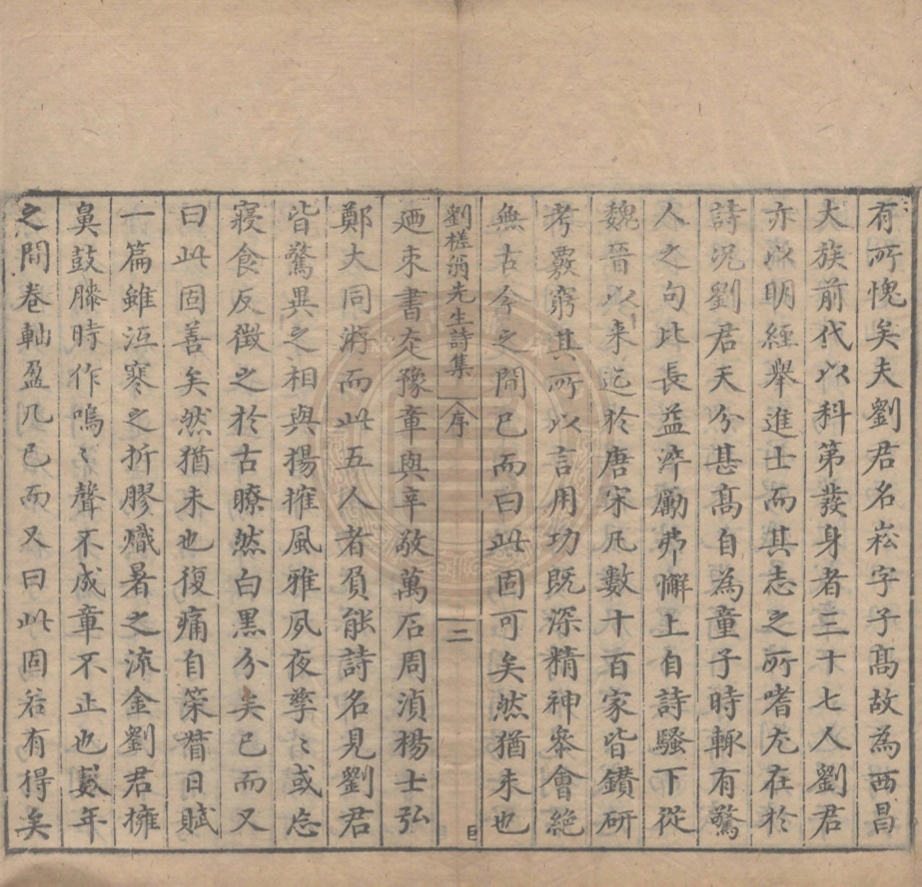 有所愧矣夫劉君名崧字子髙故為西昌
大族前代以科第發身者三十七人劉君
亦以明經舉進士而其志之所嗜尤在於
詩况劉君天分甚髙自為童子時輒有驚
人之句比長益淬勵弗懈上自詩騷下從
魏晉以来迄於唐宋凡數十百家皆鑚研
考覈窮其所以言用功既深精神參會絶
無古今之間已而曰此固可矣然猶未也
劉槎翁先生詩集 序 二
廼束書走豫章與辛敬萬石周湞楊士弘
鄭大同游而此五人者負能詩名見劉君
皆驚異之相與揚搉風雅夙夜孳〻或忘
寢食反徵之於古瞭然白黒分矣已而又
曰此固善矣然猶未也復痛自策督日賦
一篇雖沍寒之折膠熾暑之流金劉君擁
鼻鼓膝時作嗚〻聲不成章不止也數年
之間巻軸盈几已而又曰此固若有得矣